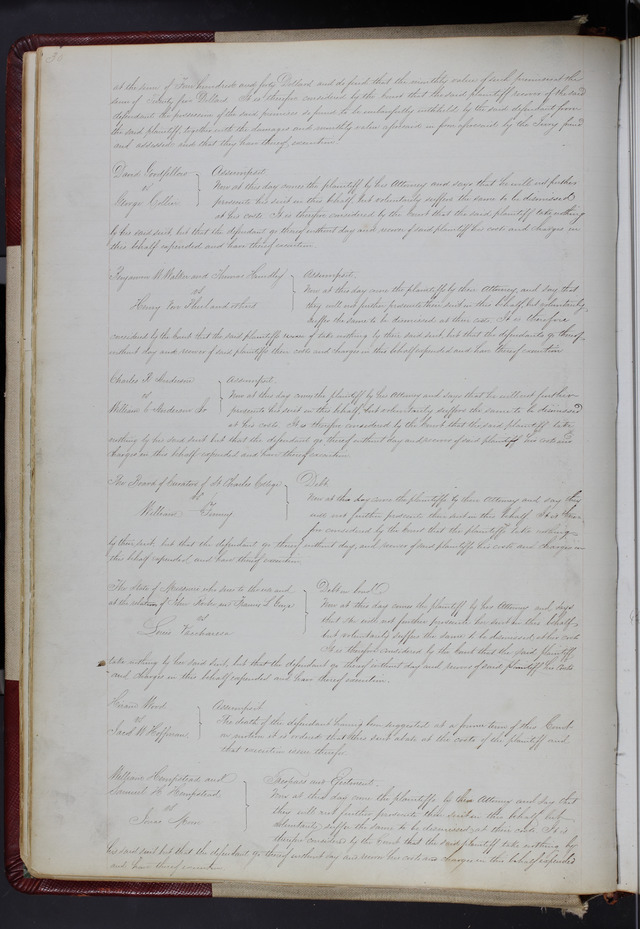 at the sum of Four hundred and fifty Dollars and do find that the monthly value of such premises at the
sum of Forty five Dollars. It is therefore considered by the Court that the said plaintiff recover of the said
defendant the possession of the said premises so found to be unlawfully withheld by the said defendant from
the said plaintiff, together with the damages and monthly value aforesaid in form aforesaid by the Jury found
and assessed and that they have thereof execution.
David Goodfellow Assumpsit.
vs Now at this day comes the plaintiff by his Attorney and says that he will not further
George Collier prosecute his suit in this behalf, but voluntarily suffers the same to be dismissed
at his costs. It is therefore considered by the Court that the said plaintiff take nothing
by his said suit, but that the defendant go thereof without day and recover of said plaintiff his costs and charges in
this behalf expended and have thereof execution.
Benjamin W. Walker and Thomas Handley Assumpsit.
vs Now at this day come the plaintiffs by their Attorney, and say that
Henry Von Phul and others they will not further prosecute their suit in this behalf, but voluntarily
suffer the same to be dismissed at their costs. It is therefore
considered by the Court that the said plaintiffs take nothing by their said suit, but that the defendants go thereof
without day and recover of said plaintiffs their costs and charges in this behalf expended and have thereof execution
Charles R. Anderson Assumpsit.
vs Now at this day comes the plaintiff by his Attorney and says that he will not further
William C. Anderson Jr. prosecute his suit in this behalf, but voluntarily suffers the same to be dismissed
at his costs. It is therefore considered by the Court that the said plaintiff take
nothing by his said suit but that the defendant go thereof without day and recover of said plaintiff his costs and
charges in this behalf expended and have thereof execution.
The Board of Curators of St Charles College Debt.
vs Now at this day come the plaintiffs by their Attorney and say they
William will not further prosecute their suit in this behalf. It is there-
fore considered by the Court that the plaintiffs take nothing
by their suit, but that the defendant go thereof without day, and recover of said plaintiffs his costs and charges in
this behalf expended, and have thereof execution.
The State of Missouri who sues to the use and Debt on bond.
at the relation of and Francis L. Now at this day comes the plaintiff by her Attorney and says
vs that she will not further prosecute her suit in this behalf
Louis but voluntarily suffers the same to be dismissed at her costs
It is therefore considered by the Court that the said plaintiff
take nothing by her said suit, but that the defendant go thereof without day and recover of said plaintiff his costs
and charges in this behalf expended and have thereof execution.
Hiram Wood Assumpsit
vs The death of the defendant having been suggested at a former term of this Court
Jacob W. Hoffman on motion it is ordered that this suit abate at the costs of the plaintiff and
that execution issue therefor.
William Hempstead and Trespass and Ejectment.
Samuel H. Hempstead Now at this day come the plaintiffs by their Attorney and say that
vs they will not further prosecute their suit in this behalf, but
voluntarily suffer the same to be dismissed at their costs. It is
therefore considered by the Court that the said plaintiffs take nothing by
his said suit but that the defendant go thereof without day and recover his costs and charges in this behalf expended
and have thereof execution